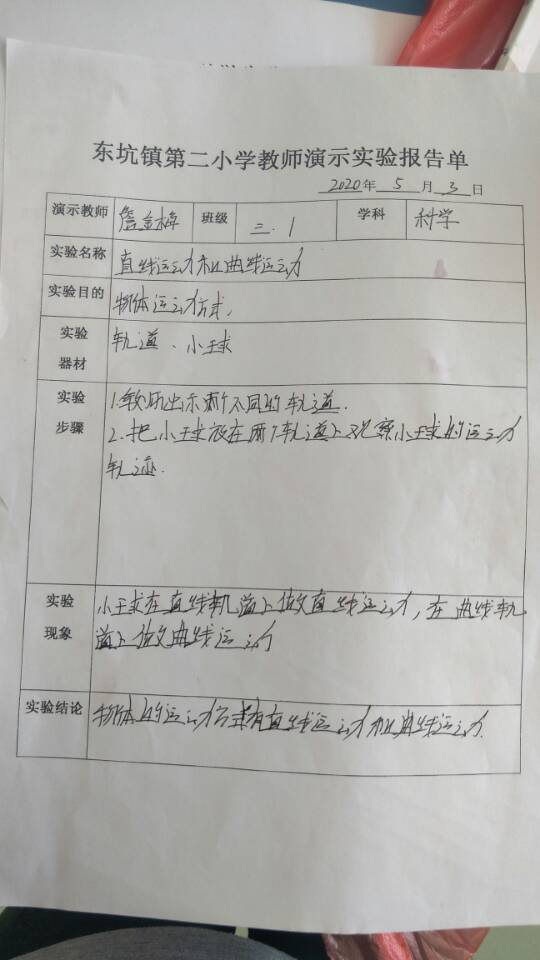 东坑镇第二小学教师演示实验报告单
2020年 5 月 3 日
演示教师 詹金梅 班级 三.1 学科 科学
实验名称 直线运动和曲线运动
实验目的 物体运动方式.
实验器材 轨道、小球
实验步骤 1.教师出示两个不同的轨道.
2.把小球放在两个轨道上观察小球的运动
轨迹.
实验现象 小球在直线轨道上做直线运动,在曲线轨
道上做曲线运动
实验结论 物体的运动方式有直线运动和曲线运动.